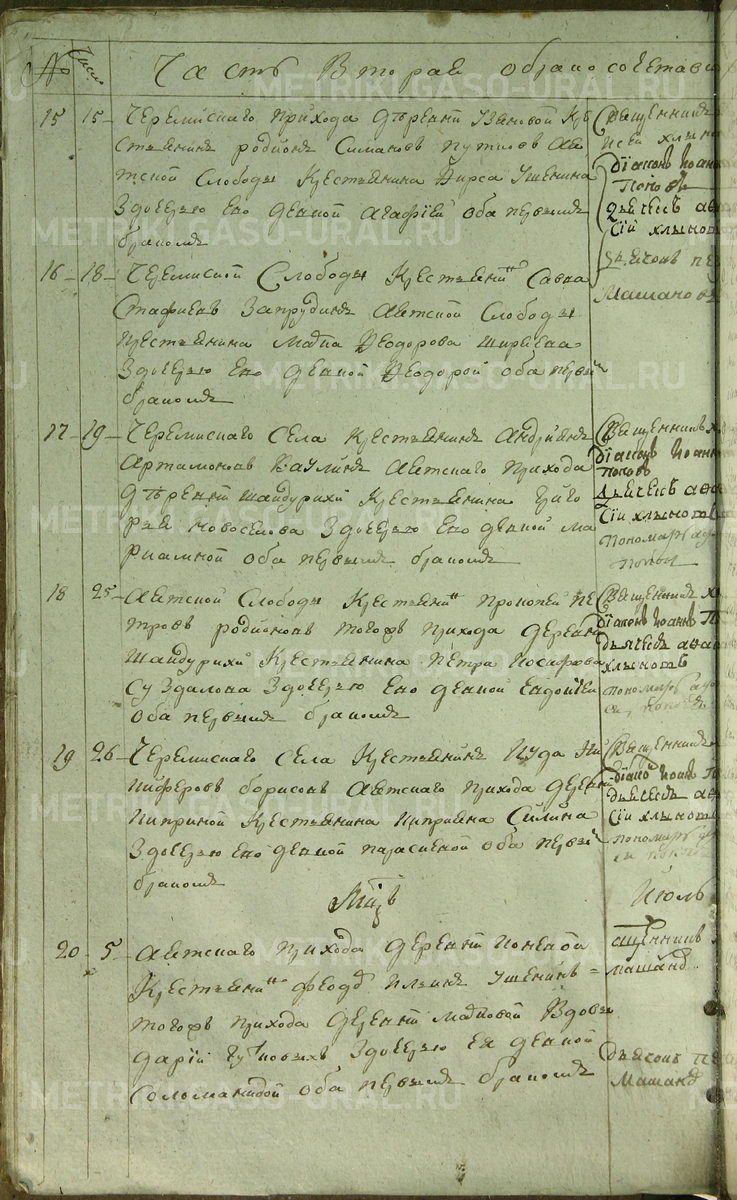 № Число Часть Вторая о бракосочетав
15 15 Черемискаго прихода деревни Узяновой кре
стьянинъ родионъ Симановъ путиловъ ає
тской Слободы крестьянина Кирса Ушенина
Здочерью Ево девкой агафией оба первымъ
бракомъ
Священникъ
діаконъ Іоан
Поповъ
дьячекъ афа
сій хлынов
дьячокъ пе
Машановъ
16 18 Черемиской Слободы крестьянинъ Савва
Стафиевъ Запрудинъ аетской Слободы
крестьянина Федорова Ширяева
Здочерью Ево девкой Федорой оба первы
бракомъ
17 19 Черемискаго Села крестьянинъ андриянъ
артамоновъ Ваулинъ аетскаго прихода
деревни шайдурихи крестьянина Григо
рья новоселова Здочерью Ево девкой ма
риамной оба первымъ бракомъ
Священникъ х
діаконъ Іоан
поповъ
дьячекъ афа
сій хлыновъ
пономарь
попов
18 25 аетской Слободы крестьянинъ прокопей пе
тровъ родионовъ тогожъ прихода деревни
шайдурихи крестьянина петра Иосафова
Суздалова Здочерью Ево девкой Евдокиеи
оба первымъ бракомъ
Священникъ х
діаконъ Іоанъ П
дьячекъ афа
хлыновъ
пономарь
19 26 Черемискаго Села крестьянинъ Иуда Ни
киферовъ борисовъ аетскаго прихода деревни
киприной крестьянина киприяна Силина
Здочерью Ево девкой парасквой оба первы
бракомъ
Священникъ
діаконъ Іоанъ П
дьячекъ афа
сій хлынов
пономарь
Мцъ Июль
20 5 аетскаго прихода деревни
крестьянинъ феодъ Ушенинъ
тогожъ прихода деревни Вдовы
дарии Здочерью Ея девкой
Соломанидой оба первымъ бракомъ
ященникъ
машанд
дьячокъ пе
Машанд
METRIK.GASO-URAL.RU